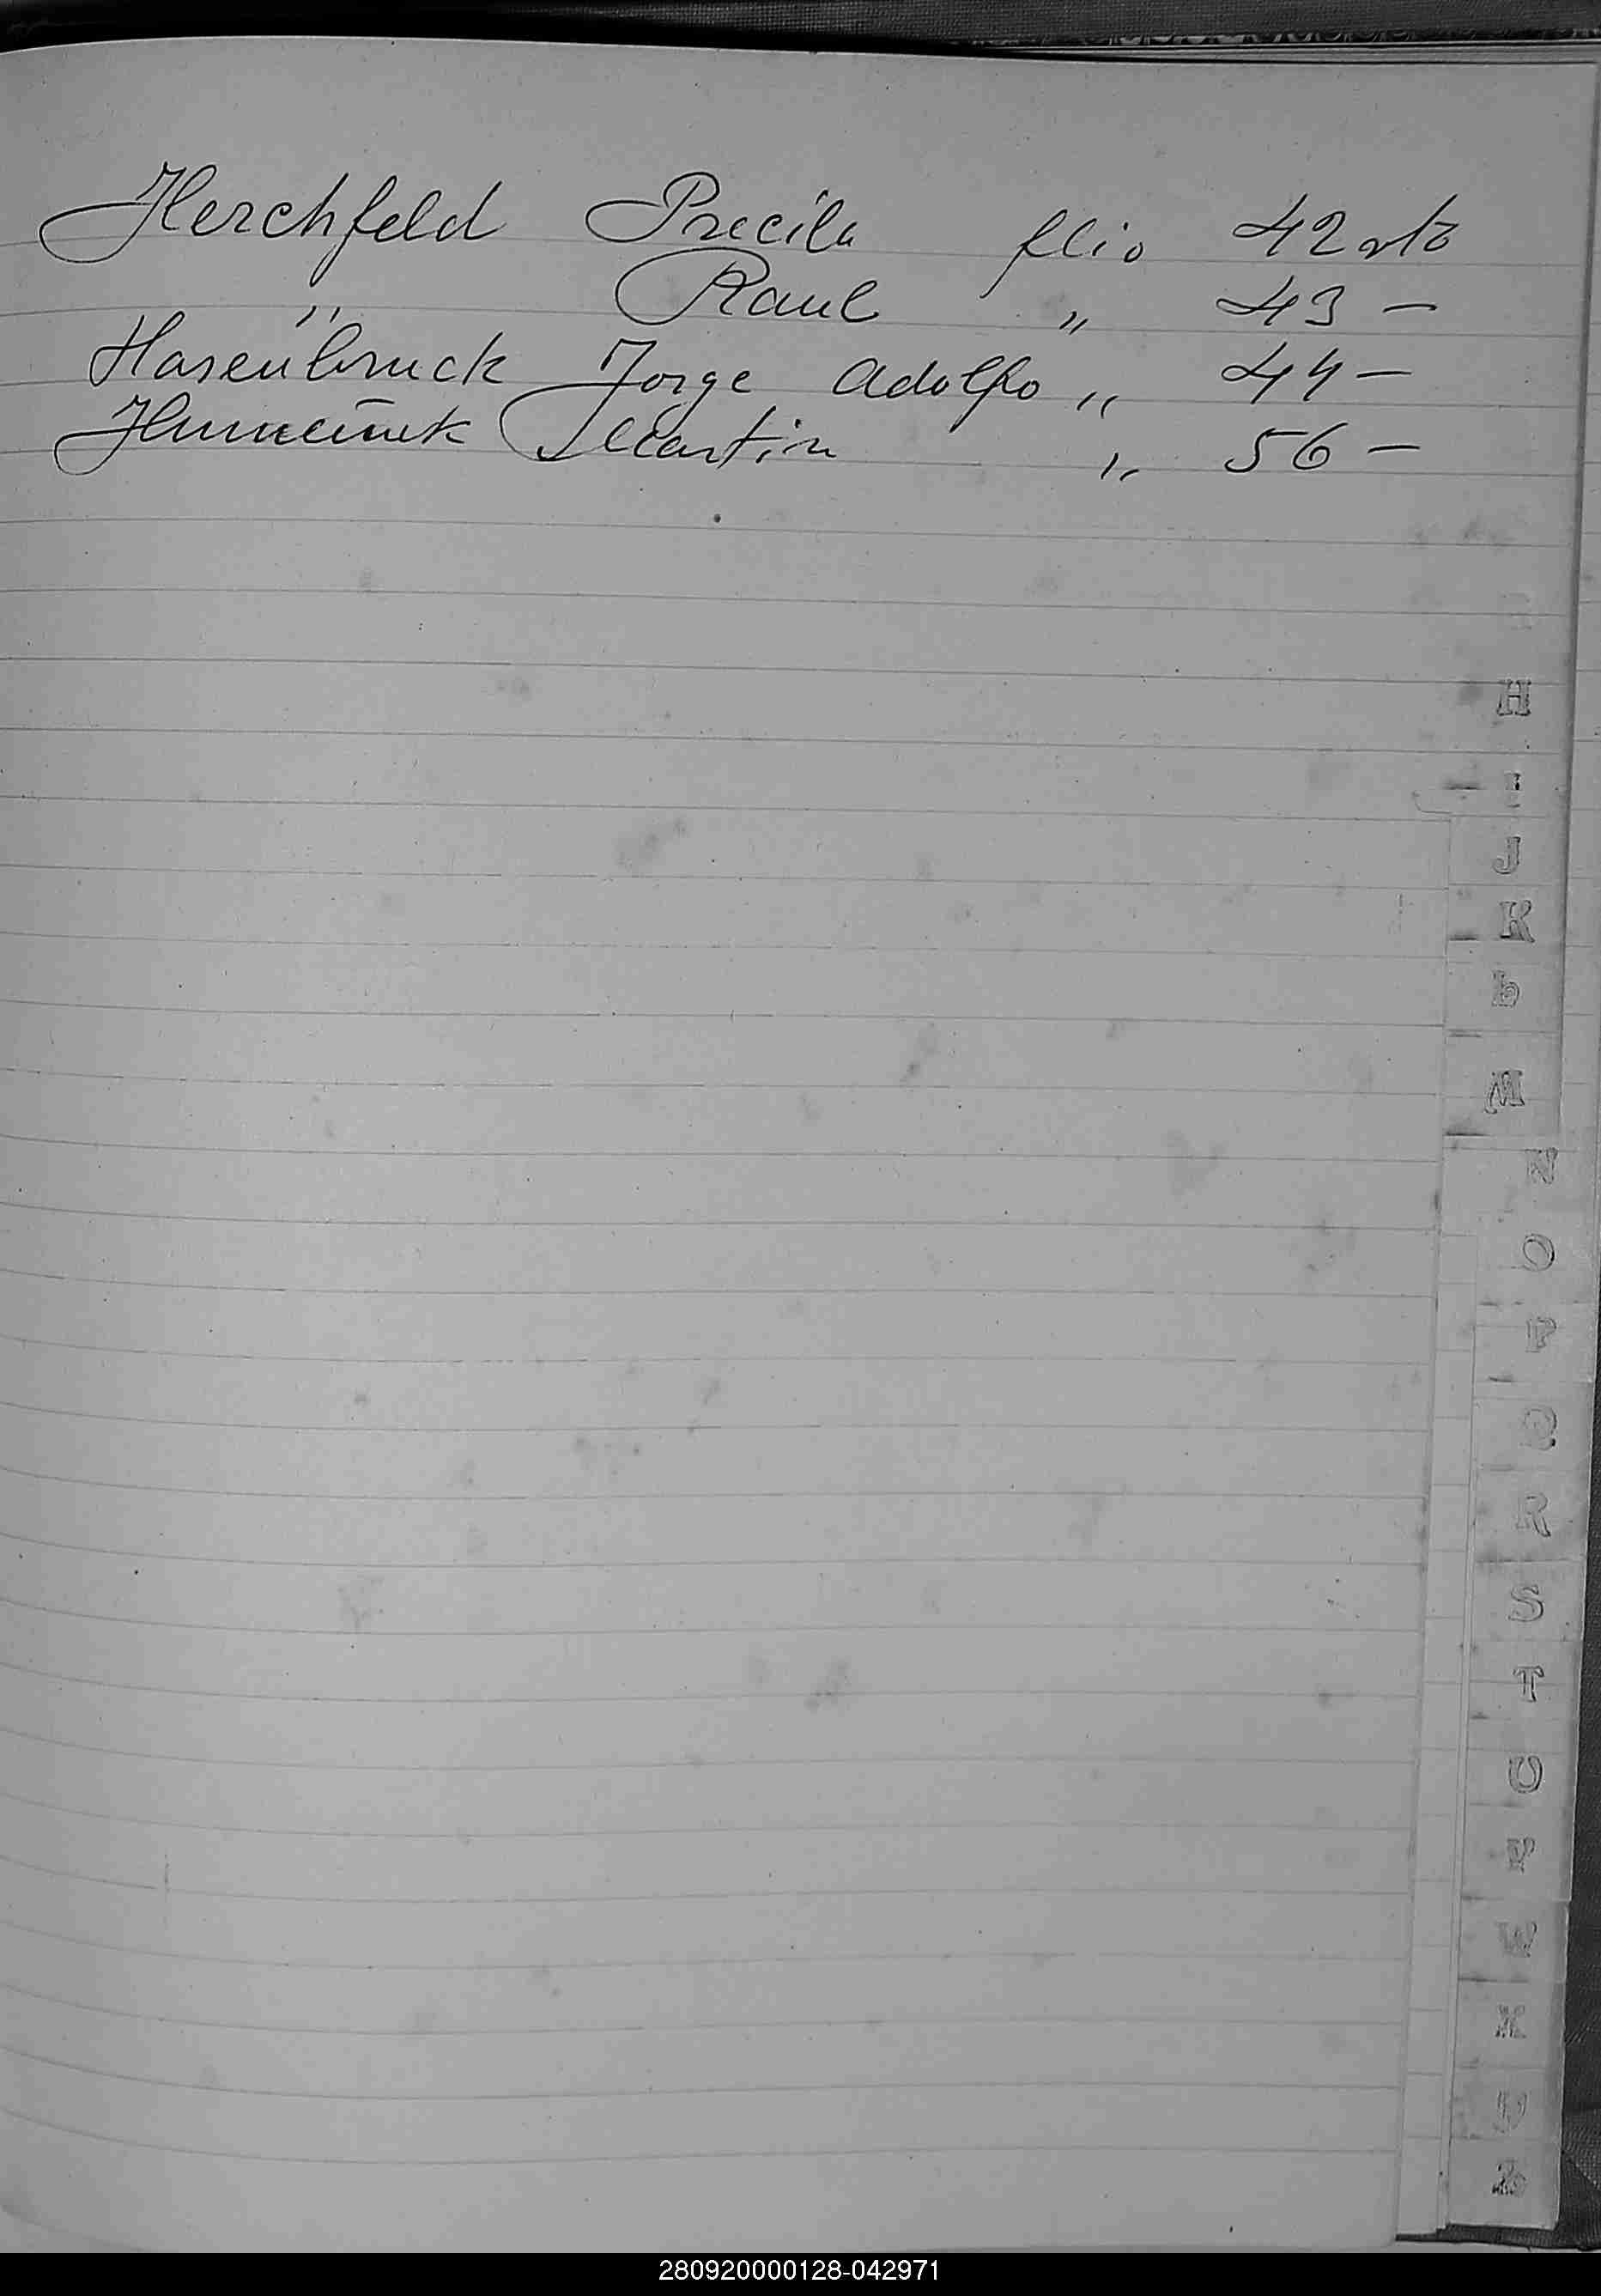 Herchfeld Precila flio 42 vto
" Raul " 43 -
Hasenbruck Jorge Adolfo " 44 -
Martin " 56 -
H
I
J
K
L
M
N
O
P
Q
R
S
T
U
V
W
X
Y
Z
280920000128-042971